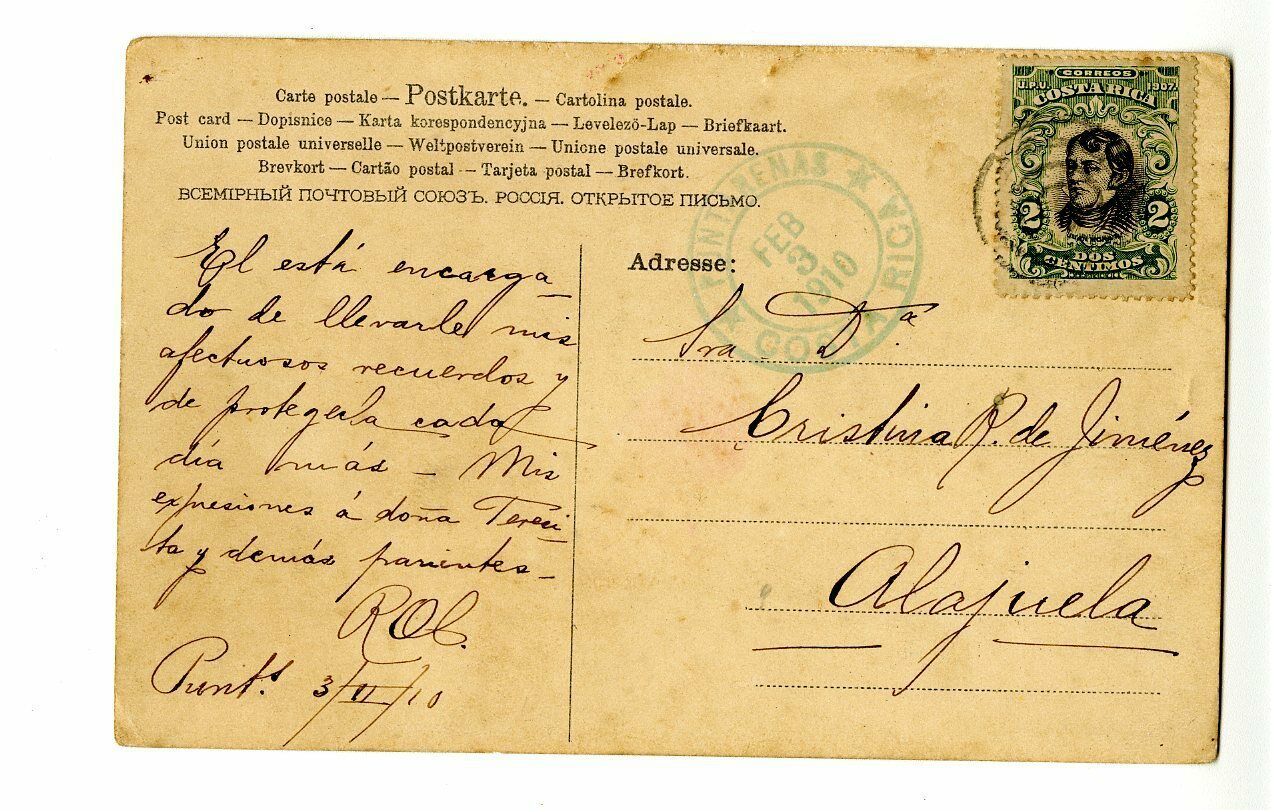 Carte postale — Postkarte. — Cartolina postale.
Post card — Dopisnice — Karta korespondencyjna — Levelező-Lap — Briefkaart.
Union postale universelle — Weltpostverein — Unione postale universale.
Brevkort — Cartão postal — Tarjeta postal — Brefkort.
ВСЕМІРНЫЙ ПОЧТОВЫЙ СОЮЗЪ. РОССІЯ. ОТКРЫТОЕ ПИСЬМО.
El está encarga_
do de llevarle mis
afectuosos recuerdos y
de protegerla cada
día más — Mis
expresiones á doña Teresi_
ta y demás parientes_
Punt.s 3/II/10
Adresse:
Sra D.ª
Cristina R. de Jiménez
Alajuela
PUNTARENAS
FEB
3
1910
COSTA RICA
CORREOS
U.P.U. 1907.
COSTA RICA
2 2
DOS
CENTIMOS